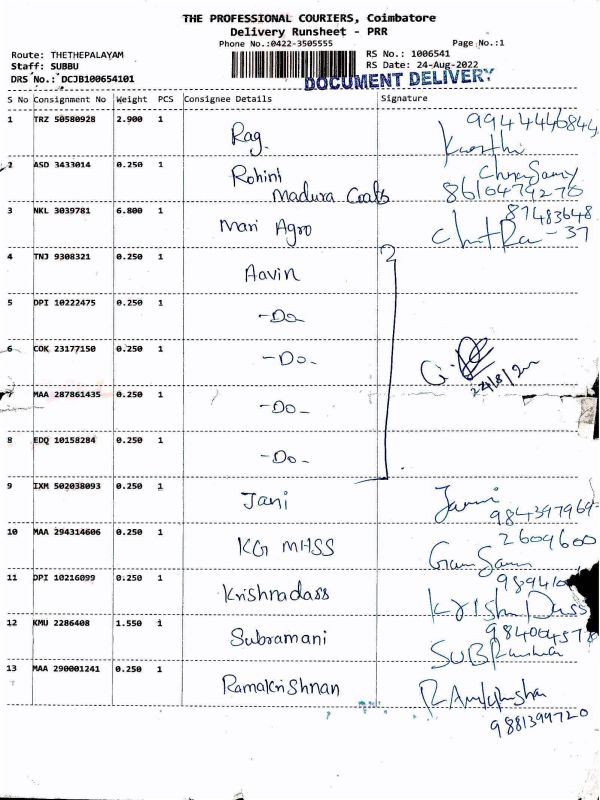 THE PROFESSIONAL COURIERS, Coimbatore
Delivery Runsheet - PRR
Phone No.:0422-3505555
Page No.:1
Route: THETHEPALAYAM
Staff: SUBBU
DRS No.: DCJB100654101
RS No.: 1006541
RS Date: 24-Aug-2022
DOCUMENT DELIVERY
S No Consignment No Weight PCS Consignee Details Signature
1 TRZ 50580928 2.900 1 Rag. 9944446844
Karthi
2 ASD 3433014 0.250 1 Rohini
Madura Coats 8610479270
3 NKL 3039781 6.800 1 Mari Agro 87483648
-37
4 TNJ 9308321 0.250 1 Aavin
5 DPI 10222475 0.250 1 -Do
6 COK 23177150 0.250 1 -Do-
24/8/22
7 MAA 287861435 0.250 1 -Do-
8 EDQ 10158284 0.250 1 -Do-
9 IXM 502038093 0.250 1 Jani Jani
984397969-
10 MAA 294314606 0.250 1 KG MHSS 2609600
11 DPI 10216099 0.250 1 Krishnadass
Krishn Dass
12 KMU 2286408 1.550 1 Subramani 984004578
13 MAA 290001241 0.250 1 Ramakrishnan
9881399720